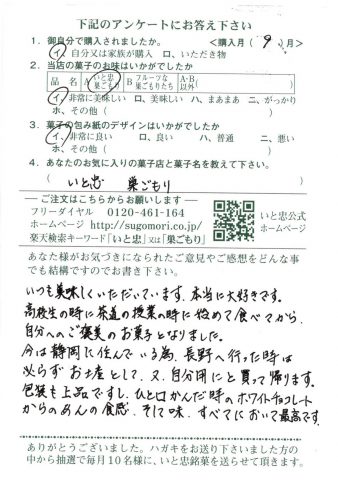 下記のアンケートにお答え下さい
1. 御自分で購入されましたか。 <購入月( 9 )月>
イ、自分又は家族が購入 ロ、いただき物
2. 当店の菓子のお味はいかがでしたか
品名 A いと忠巣ごもり B フルーツな巣ごもりたち A・B以外( )
イ、非常に美味しい ロ、美味しい ハ、まあまあ ニ、がっかり
ホ、その他( )
3. 菓子の包み紙のデザインはいかがでしたか
イ、非常に良い ロ、良い ハ、普通 ニ、悪い
ホ、その他( )
4. あなたのお気に入りの菓子店と菓子名を教えて下さい。
( いと忠 巣ごもり )
ご注文はこちらからお願いします
フリーダイヤル 0120-461-164
ホームページ http://sugomori.co.jp/
楽天検索キーワード「いと忠」又は「巣ごもり」
いと忠公式
ホームページ
あなた様がお気づきになられたご意見やご感想をどんな事
でも結構ですのでお書き下さい。
いつも美味しくいただいています。本当に大好きです。
高校生の時に茶道の授業の時に初めて食べてから、
自分へのご褒美のお菓子となりました。
今は静岡に住んでいる為、長野へ行った時は
必らずお土産として、又、自分用にと買って帰ります。
包装も上品ですし、ひと口かんだ時のホワイトチョコレート
からのあんの食感、そして味、すべてにおいて最高です。
ありがとうございました。ハガキをお送り下さいました方の
中から抽選で毎月10名様に、いと忠銘菓を送らせて頂きます。